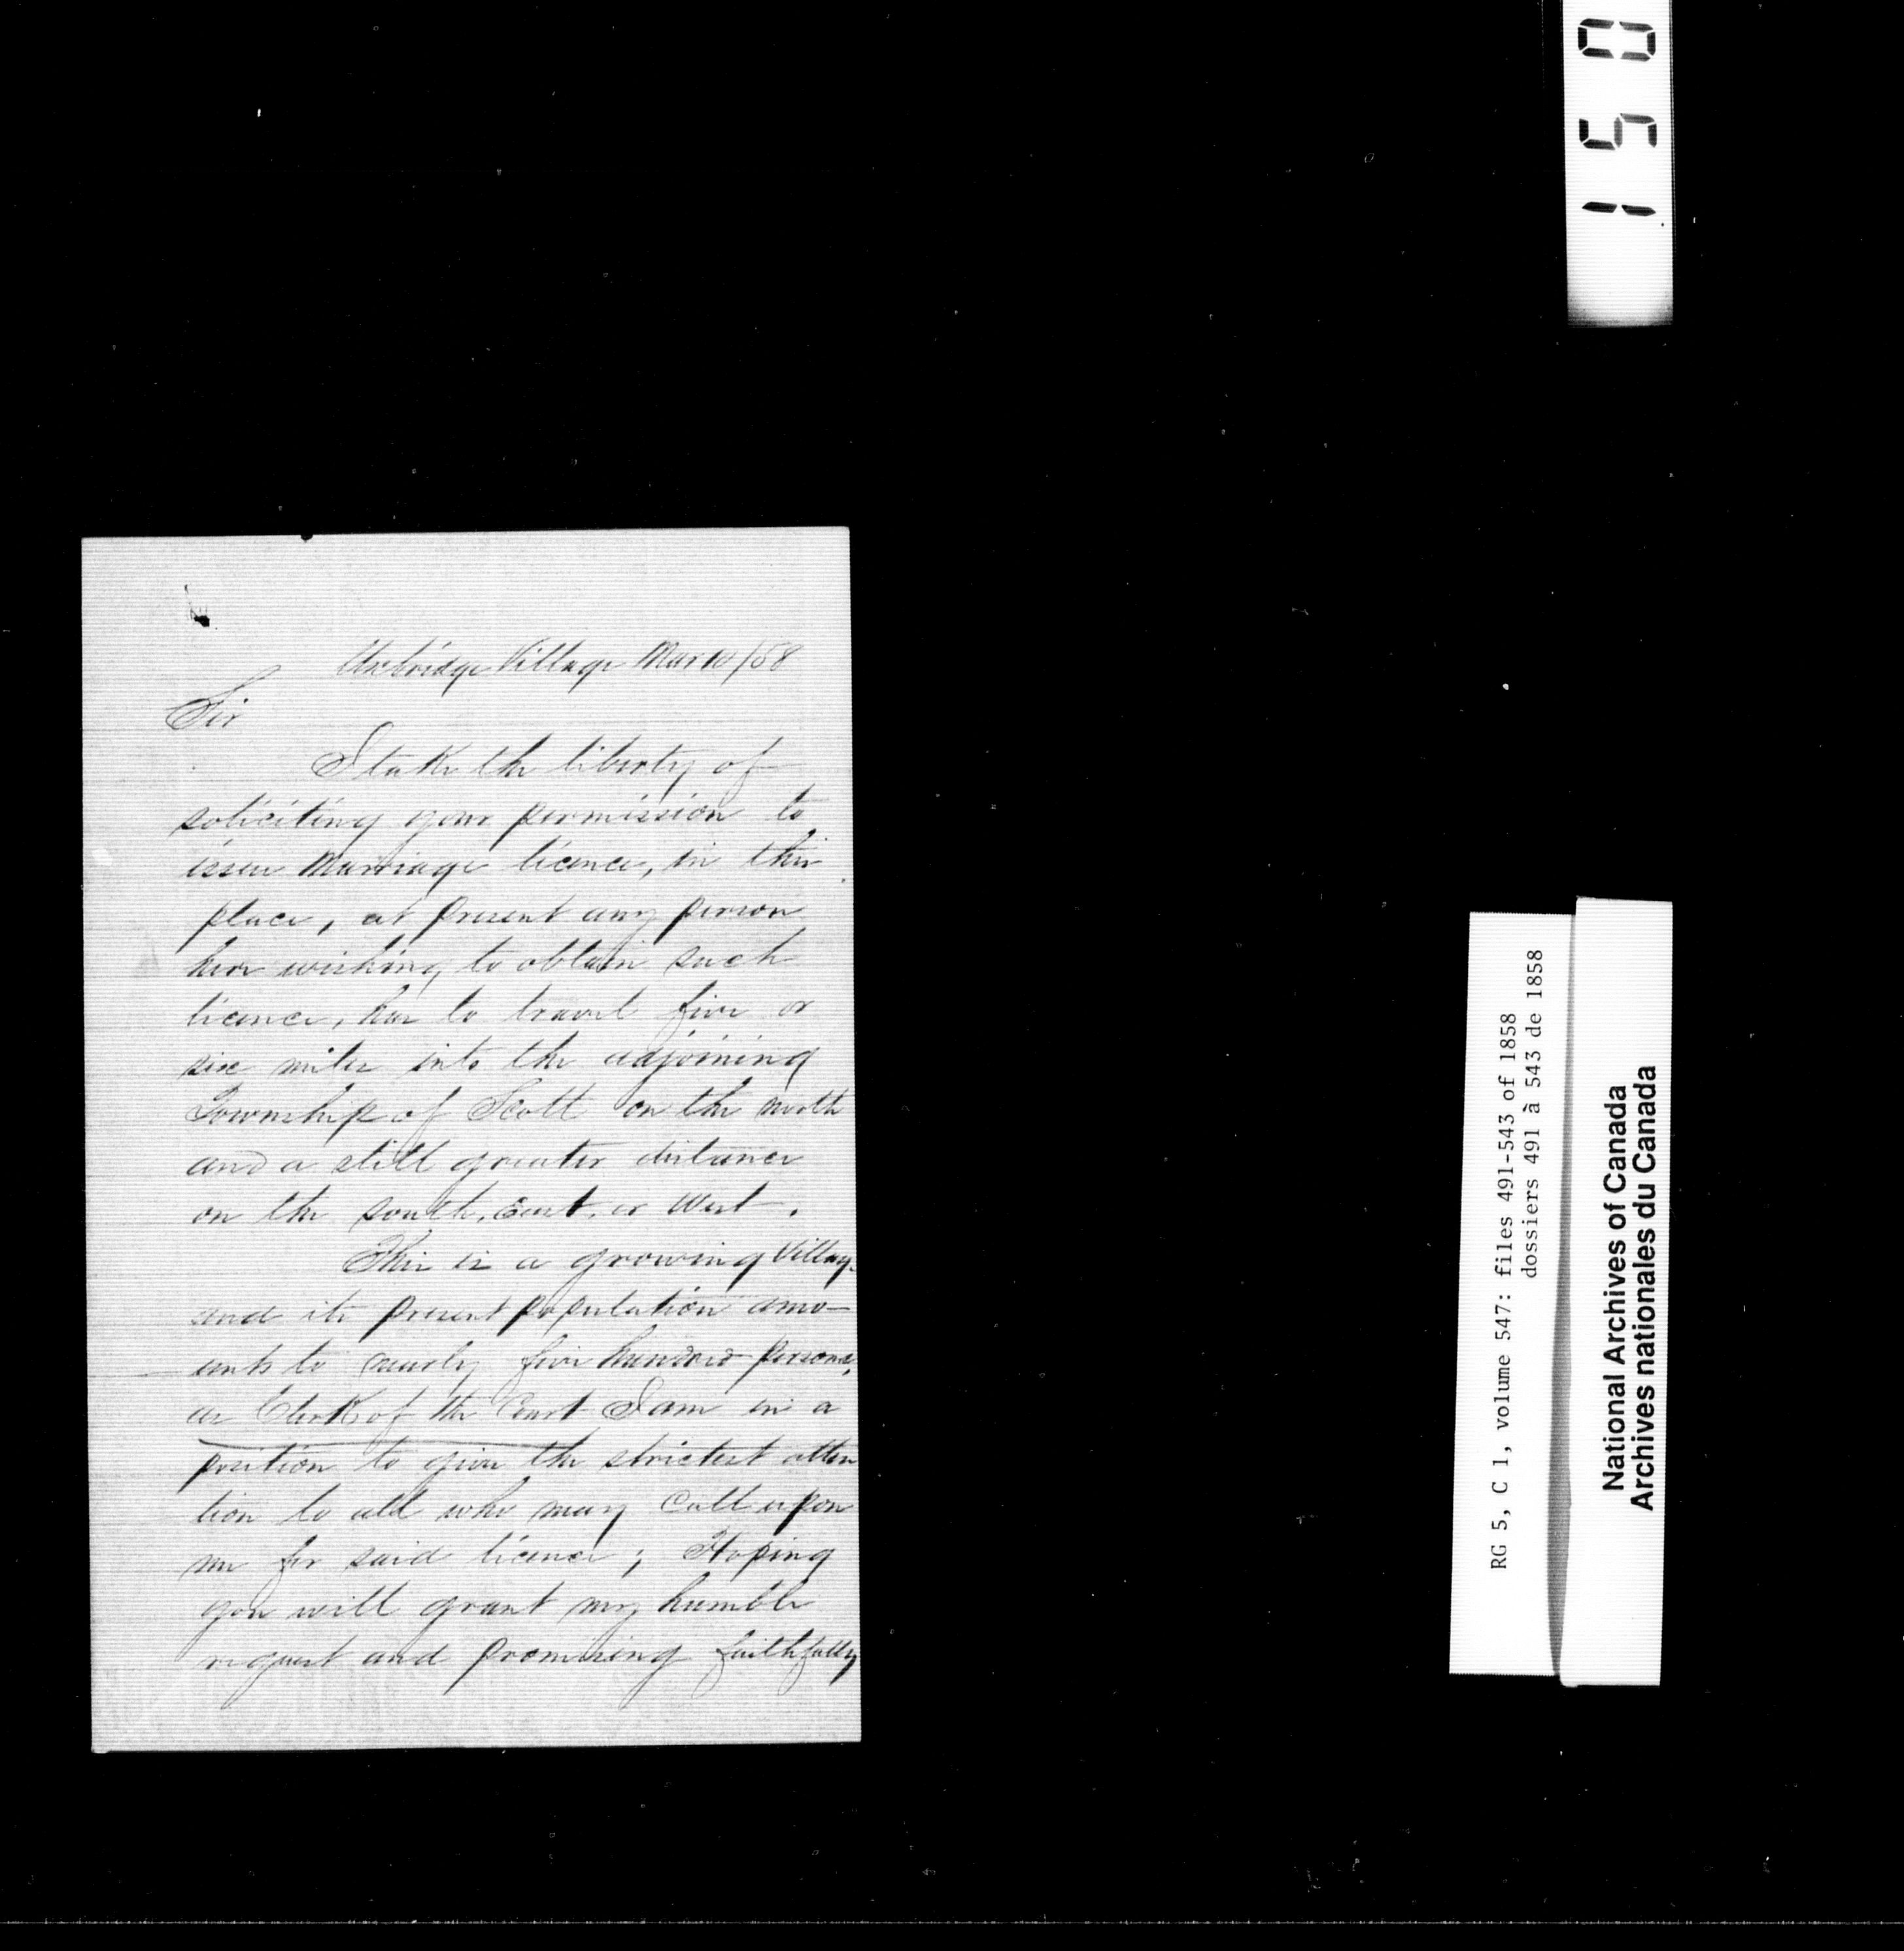 Uxbridge Village Mar 10/58
Sir
I take the liberty of
soliciting your permission to
issue Marriage licence, in this
place, at present any person
here wishing to obtain such
licence, has to travel five or
six miles into the adjoining
Township of Scott on the north
and a still greater distance
on the south, East, or West.
This is a growing Village
and its present population amo-
unts to nearly five hundred persons,
as Clerk of the Court I am in a
position to give the strictest atten
tion to all who may Call upon
me for said licence; Hoping
you will grant my humble
request and promising faithfully
150
RG 5, C 1, volume 547: files 491-543 of 1858
dossiers 491 à 543 de 1858
National Archives of Canada
Archives nationales du Canada